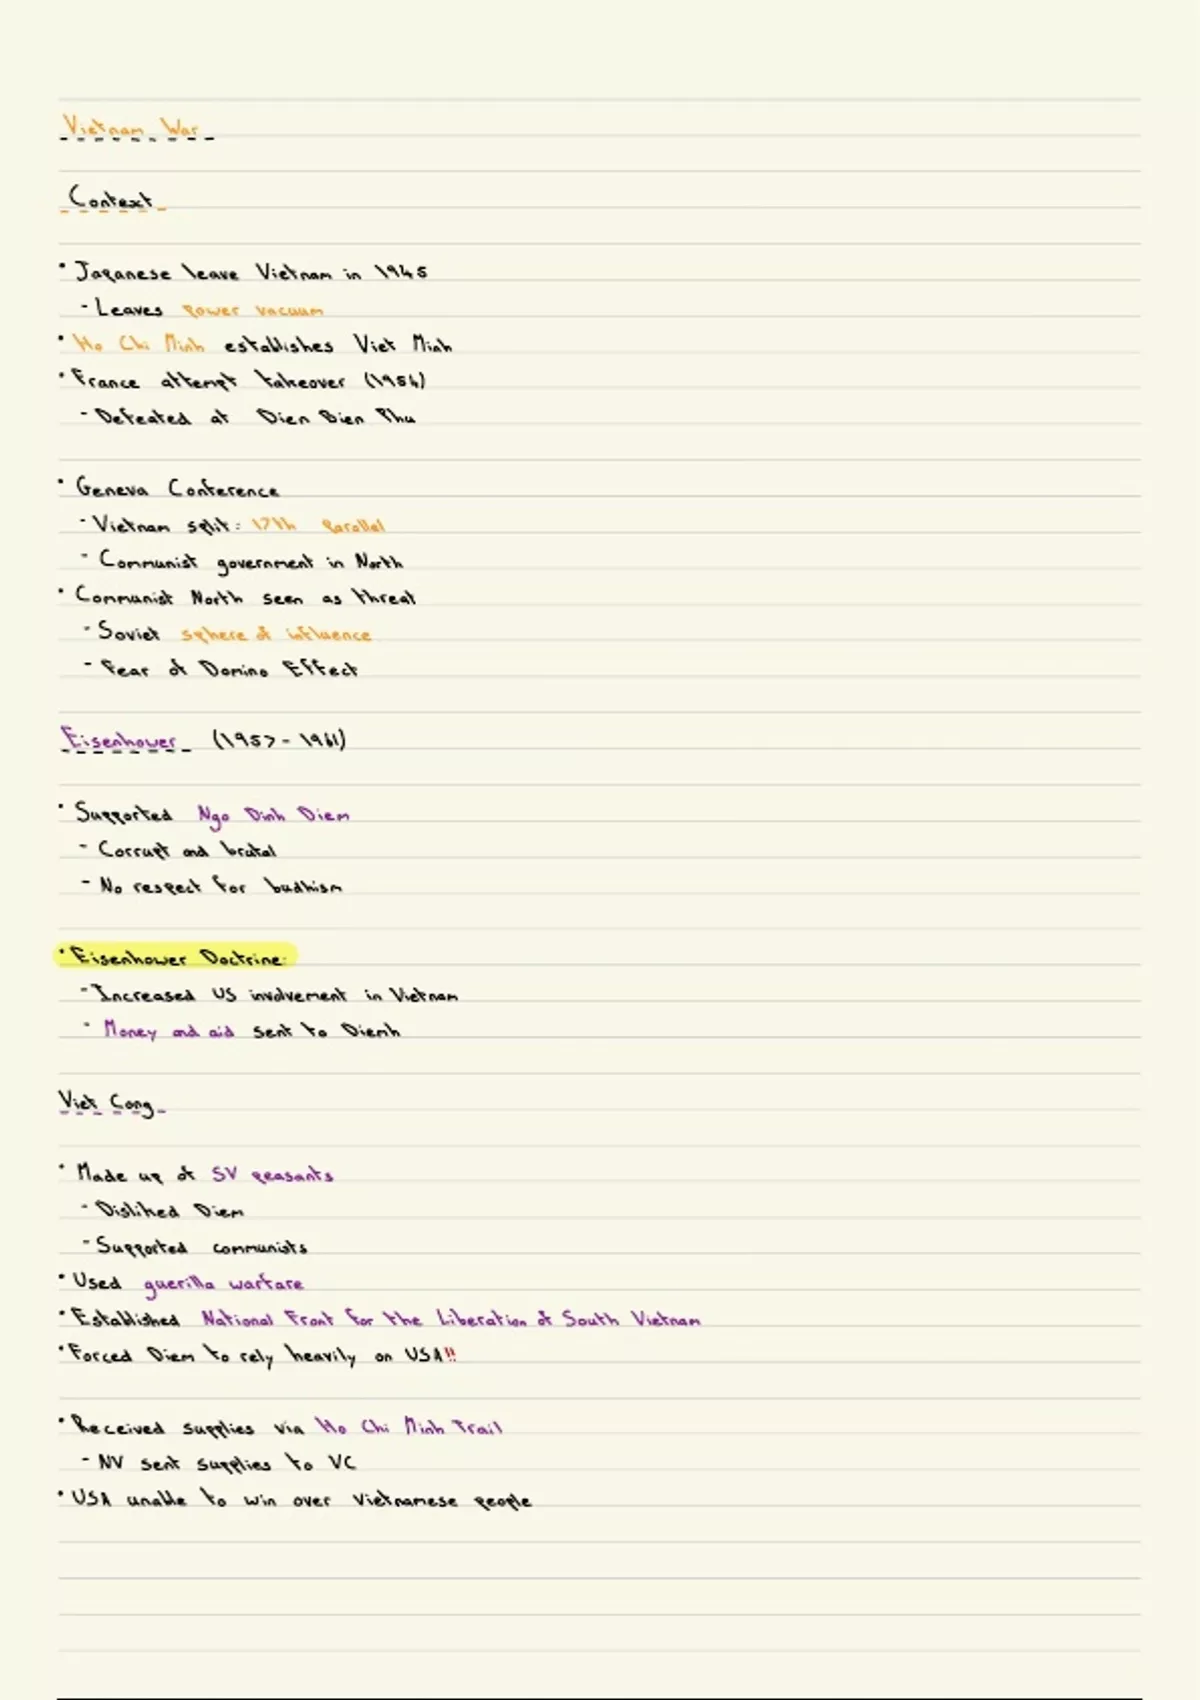 Vietnam War
Context
• Japanese leave Vietnam in 1945
- Leaves power vacuum
• Ho Chi Minh establishes Viet Minh
• France attempt takeover (1954)
- Defeated at Dien Bien Phu
• Geneva Conference
- Vietnam split: 17th Parallel
- Communist government in North
• Communist North seen as threat
- Soviet sphere of influence
- Fear of Domino Effect
Eisenhower (1957 - 1961)
• Supported Ngo Dinh Diem
- Corrupt and brutal
- No respect for budhism
• Eisenhower Doctrine:
- Increased US involvement in Vietnam
- Money and aid sent to Diemh
Viet Cong
• Made up of SV peasants
- Disliked Diem
- Supported communists
• Used guerilla warfare
• Established National Front for the Liberation of South Vietnam
• Forced Diem to rely heavily on USA!!
• Received supplies via Ho Chi Minh Trail
- NV sent supplies to VC
• USA unable to win over Vietnamese people